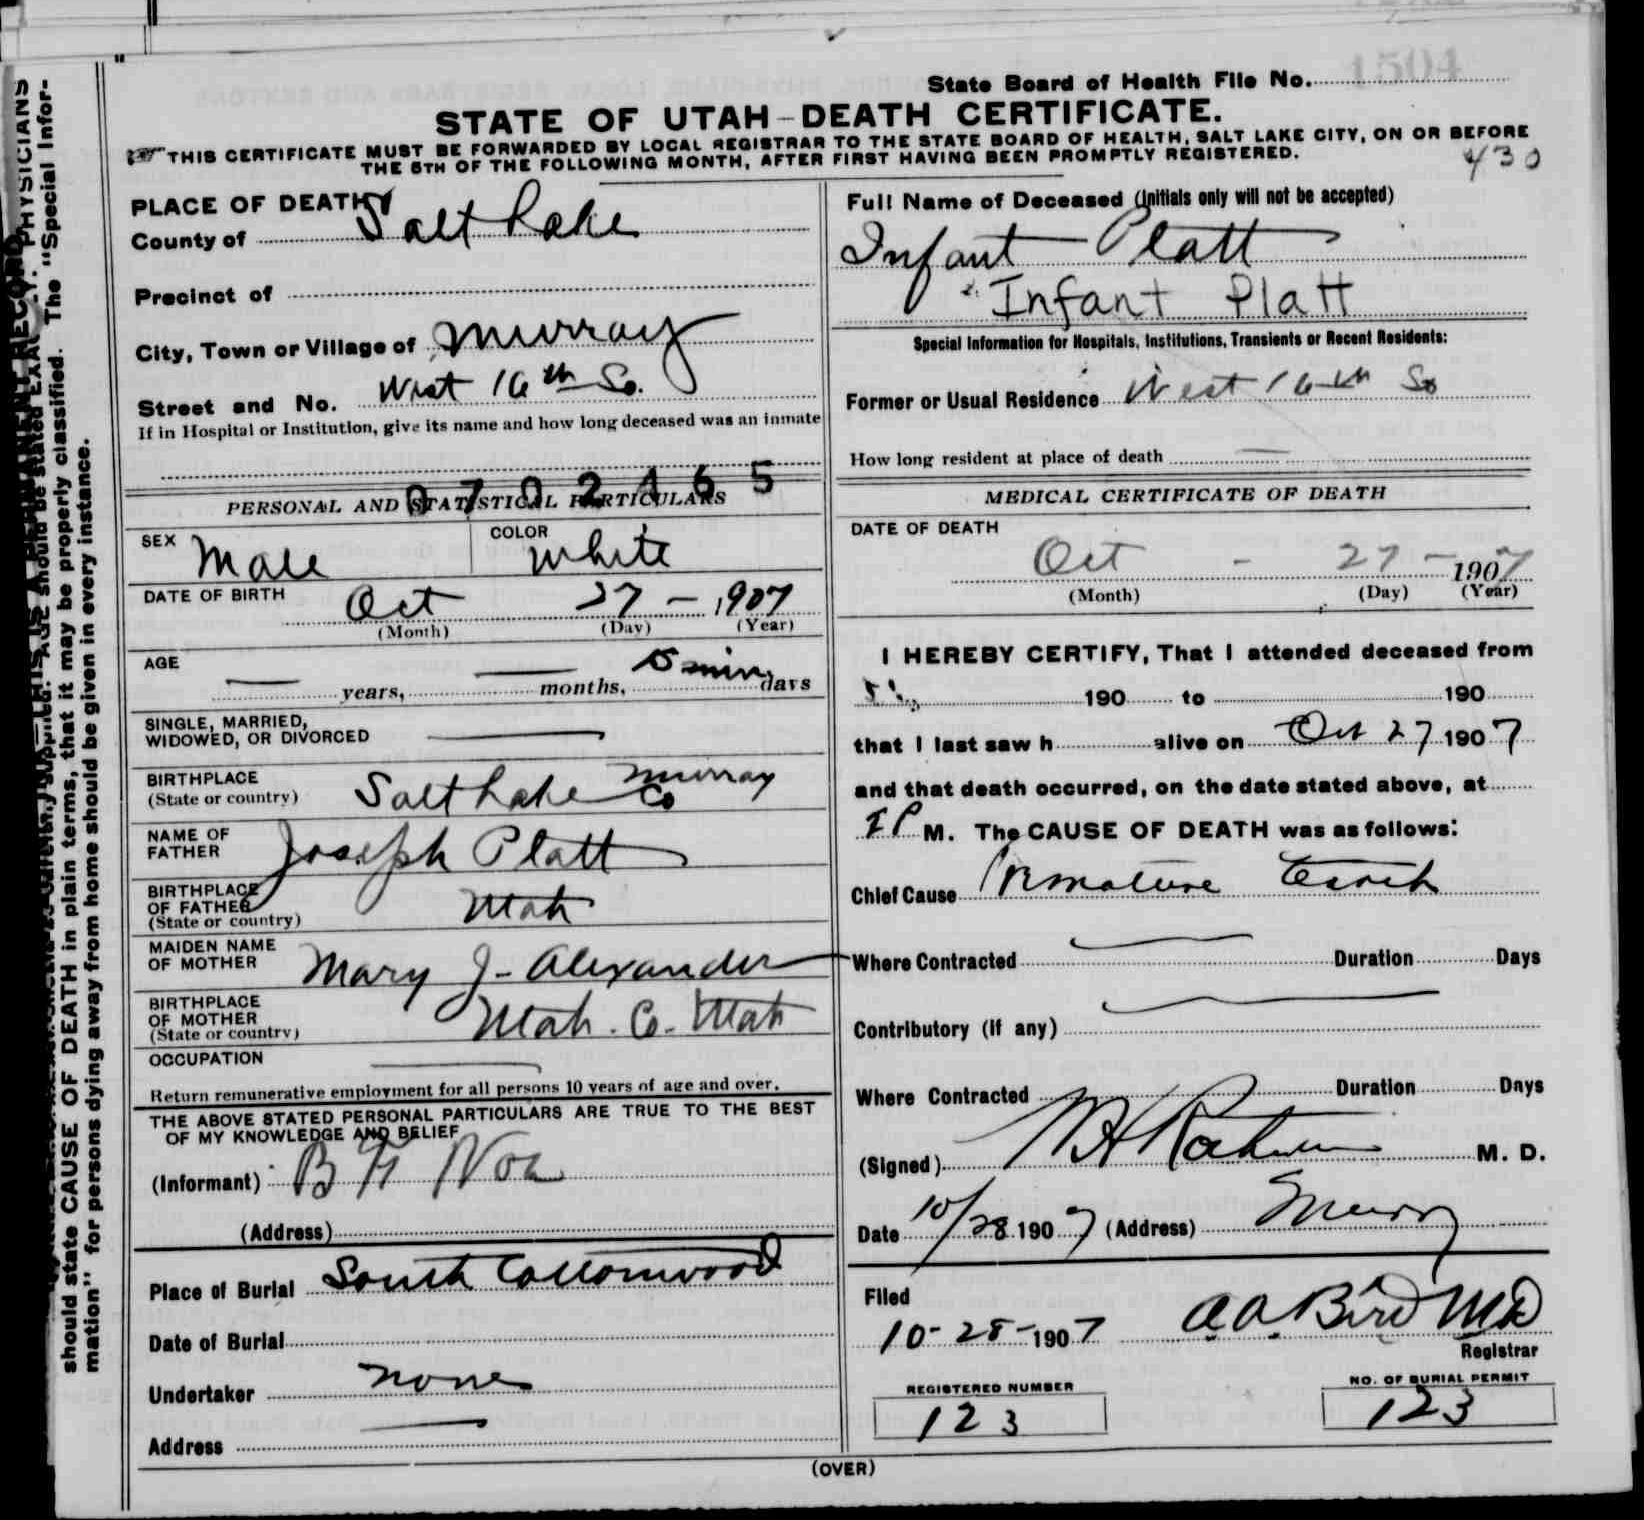 State Board of Health File No. 1504
STATE OF UTAH—DEATH CERTIFICATE.
THIS CERTIFICATE MUST BE FORWARDED BY LOCAL REGISTRAR TO THE STATE BOARD OF HEALTH, SALT LAKE CITY, ON OR BEFORE
THE 5TH OF THE FOLLOWING MONTH, AFTER FIRST HAVING BEEN PROMPTLY REGISTERED.
430
PLACE OF DEATH
County of Salt Lake
Precinct of
City, Town or Village of Murray
Street and No. West 16th So.
If in Hospital or Institution, give its name and how long deceased was an inmate
PERSONAL AND STATISTICAL PARTICULARS
SEX Male
COLOR White
DATE OF BIRTH Oct 27 - 1907
(Month) (Day) (Year)
AGE — years, — months, 15 min days
SINGLE, MARRIED,
WIDOWED, OR DIVORCED —
BIRTHPLACE
(State or country) Salt Lake Co Murray
NAME OF
FATHER Joseph Platt
BIRTHPLACE
OF FATHER
(State or country) Utah
MAIDEN NAME
OF MOTHER Mary J - Alexander
BIRTHPLACE
OF MOTHER
(State or country) Utah. Co. Utah
OCCUPATION —
Return remunerative employment for all persons 10 years of age and over.
THE ABOVE STATED PERSONAL PARTICULARS ARE TRUE TO THE BEST
OF MY KNOWLEDGE AND BELIEF
(Informant)
(Address)
Place of Burial South Cottonwood
Date of Burial
Undertaker none
Address —
Full Name of Deceased (Initials only will not be accepted)
Infant Platt
Infant Platt
Special Information for Hospitals, Institutions, Transients or Recent Residents:
Former or Usual Residence West 16th So
How long resident at place of death —
MEDICAL CERTIFICATE OF DEATH
DATE OF DEATH
Oct - 27 - 1907
(Month) (Day) (Year)
I HEREBY CERTIFY, That I attended deceased from
190 to 190
that I last saw h alive on Oct 27 1907
and that death occurred, on the date stated above, at
P M. The CAUSE OF DEATH was as follows:
Chief Cause Premature
Where Contracted — Duration Days
Contributory (if any) —
Where Contracted Duration Days
(Signed) M. D.
Date 10/28 1907 (Address) Murray
Filed
10-28-1907 A.A. Bird MD
Registrar
REGISTERED NUMBER
123
NO. OF BURIAL PERMIT
123
(OVER)
should state CAUSE OF DEATH in plain terms, that it may be properly classified. The "Special Infor-
mation" for persons dying away from home should be given in every instance.